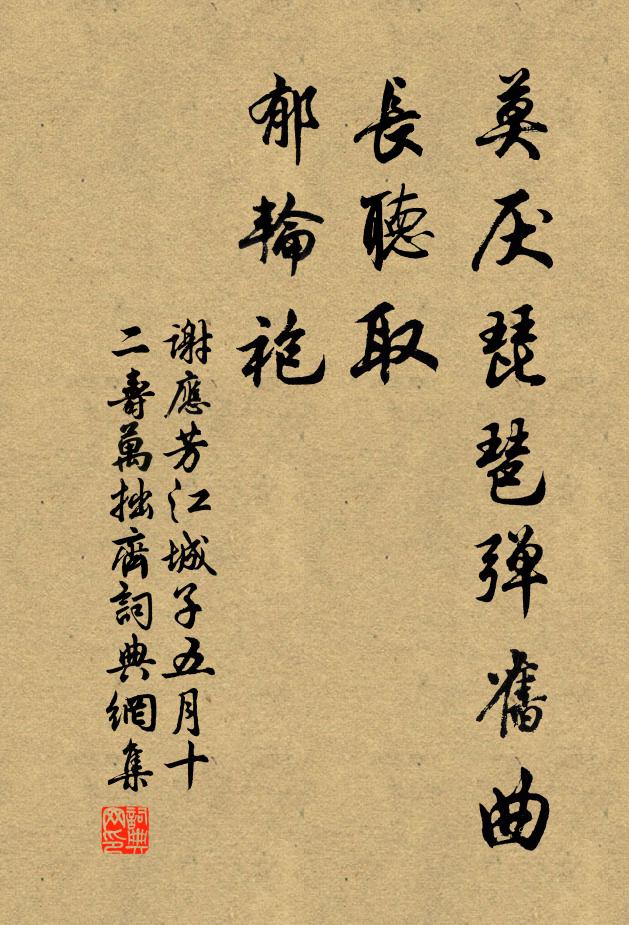 莫厌琵琶弹舊曲
長聽取
郁輪袍
謝應芳江城子五月十
二壽萬拙齊詞典網集
詞典
网印